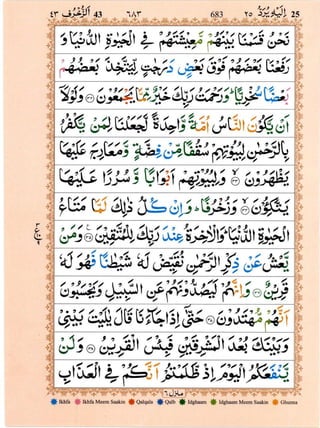 ٤٣ اَلزُّخْرُف 43 ٦٨٣ 683 ٢٥ اِلَيْهِ يُرَدُّ 25
نَحْنُ قَسَمْنَا بَيْنَهُمْ مَّعِيْشَتَهُمْ فِى الْحَيٰوةِ الدُّنْيَا وَ
رَفَعْنَا بَعْضَهُمْ فَوْقَ بَعْضٍ دَرَجٰتٍ لِّيَتَّخِذَ بَعْضُهُمْ
بَعْضًا سُخْرِيًّا ؕ وَرَحْمَتُ رَبِّكَ خَيْرٌ مِّمَّا يَجْمَعُوْنَ وَلَوْلَاۤ
اَنْ يَّكُوْنَ النَّاسُ اُمَّةً وَّاحِدَةً لَّجَعَلْنَا لِمَنْ يَّكْفُرُ
بِالرَّحْمٰنِ لِبُيُوْتِهِمْ سُقُفًا مِّنْ فِضَّةٍ وَّمَعَارِجَ عَلَيْهَا
يَظْهَرُوْنَ وَلِبُيُوْتِهِمْ اَبْوَابًا وَّ سُرُرًا عَلَيْهَا
يَتَّكِـُٔوْنَ وَزُخْرُفًا ؕ وَاِنْ كُلُّ ذٰلِكَ لَمَّا مَتَاعُ
الْحَيٰوةِ الدُّنْيَا ؕ وَالْاٰخِرَةُ عِنْدَ رَبِّكَ لِلْمُتَّقِيْنَ وَمَنْ
يَّعْشُ عَنْ ذِكْرِ الرَّحْمٰنِ نُقَيِّضْ لَهٗ شَيْطٰنًا فَهُوَ لَهٗ
قَرِيْنٌ وَاِنَّهُمْ لَيَصُدُّوْنَهُمْ عَنِ السَّبِيْلِ وَيَحْسَبُوْنَ
اَنَّهُمْ مُّهْتَدُوْنَ حَتّٰۤى اِذَا جَآءَنَا قَالَ يٰلَيْتَ بَيْنِىْ
وَبَيْنَكَ بُعْدَ الْمَشْرِقَيْنِ فَبِئْسَ الْقَرِيْنُ وَلَنْ
يَّنْفَعَكُمُ الْيَوْمَ اِذْ ظَّلَمْتُمْ اَنَّكُمْ فِى الْعَذَابِ
منزل ٦
Ikhfa Ikhfa Meem Saakin Qalqala Qalb Idghaam Idghaam Meem Saakin Ghunna